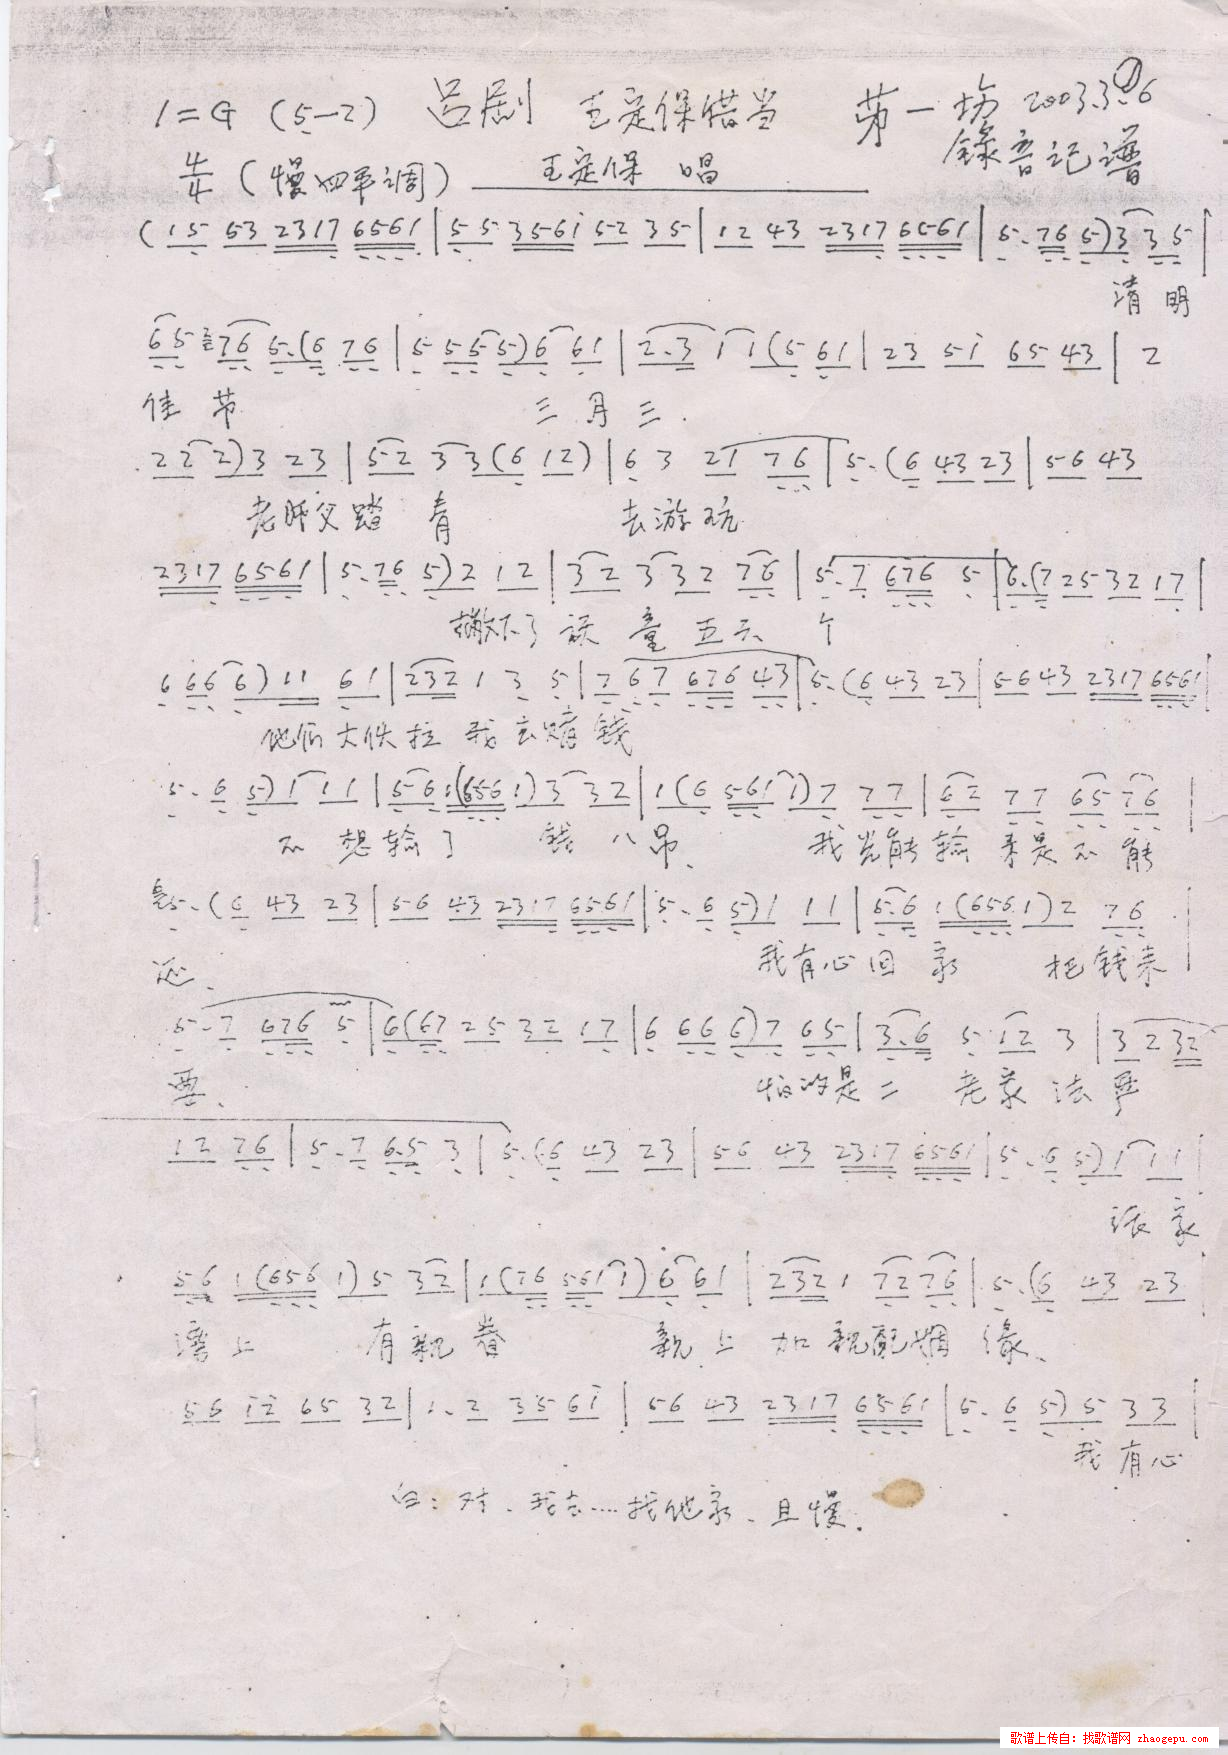 1=G (5-2) 吕剧 王定保借当 第一场 2003.3.6
① 录音记谱
4/4 (慢四平调) 王定保 唱
(15 53 2317 6561 | 55 3561 52 35 | 12 43 2317 6561 | 5. 76 5) 3 35 |
清明
65 76 5.(6 76 | 5 55 5) 6 61 | 2.3 1 1 (5 61 | 23 51 65 43 | 2
佳节 三月三.
22 2) 3 23 | 52 3 3 (6 12) | 6 3 21 76 | 5.(6 43 23 | 56 43
老师父踏青 去游玩
2317 6561 | 5.76 5) 2 12 | 32 3 32 76 | 5.7 676 5 | 6.(7 25 32 17 |
撇下了 童五六个
6 66 6) 11 61 | 232 1 3 5 | 2 67 676 43 | 5.(6 43 23 | 56 43 2317 6561 |
他们大伙拉我去赌钱
5. 6 5) 1 11 | 56 1(656 1) 3 32 | 1 (6 561 1) 7 77 | 62 77 65 76 |
不想输了 钱八吊、 我光能输来是不能
5.(6 43 23 | 56 43 2317 6561 | 5. 6 5) 1 11 | 5.6 1(656 1) 2 76 |
还、 我有心回家 把钱来
5.7 676 5 | 6(67 25 32 17 | 6 66 6) 7 65 | 3.6 5 12 3 | 3 2 32
要、 怕的是二老家法严
12 76 | 5.7 6.5 3 | 5.(6 43 23 | 56 43 2317 6561 | 5. 6 5) 1 11 |
张家
56 1(656 1) 5 32 | 1(76 561 1) 6 61 | 232 1 72 76 | 5.(6 43 23 |
湾上 有亲眷 亲上加亲配姻缘、
56 12 65 32 | 1. 2 35 61 | 56 43 2317 6561 | 5. 6 5) 5 33 |
我有心
白:对、我去……找他家、且慢.
歌谱上传自:找歌谱网 zhaogepu.com